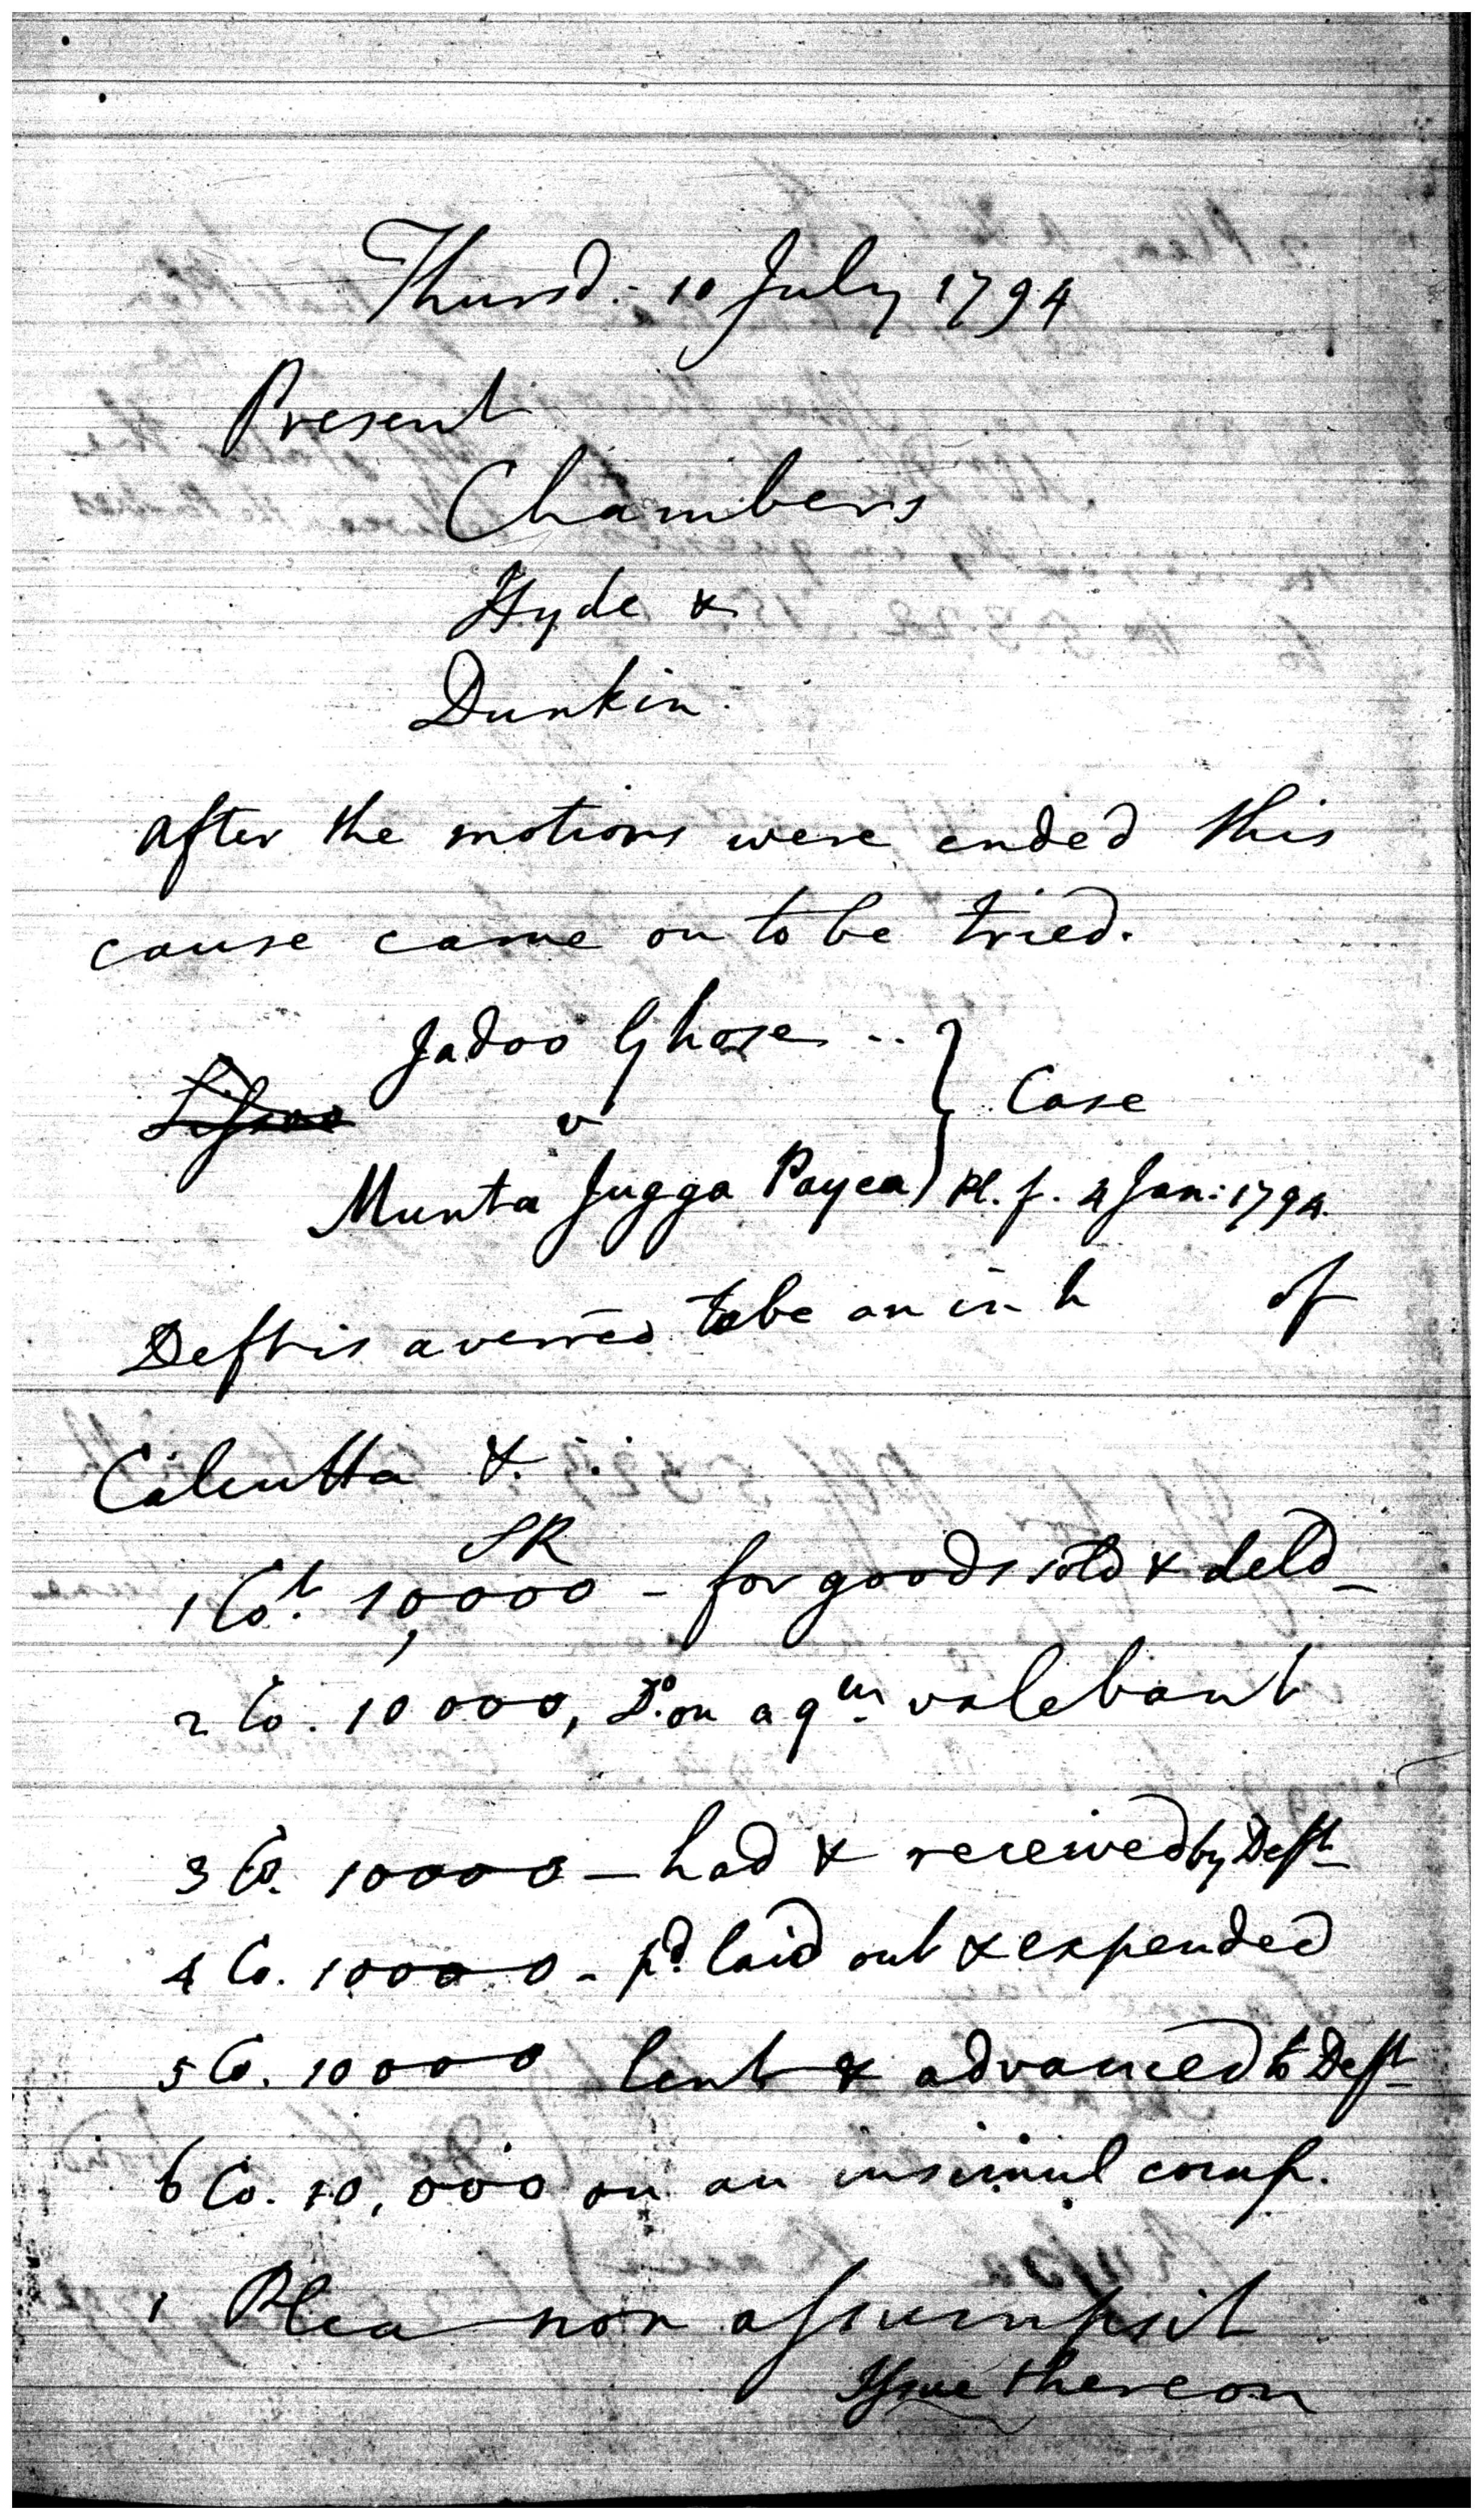 Thursd:- 10 July 1794
Present
Chambers
Hyde &
Dunkin.
after the motions were ended this
cause came on to be tried.
Jadoo Ghose ..
v } Case
Munta Jugga Payea) Pl. f. 4 Jan: 1794.
Deft is averred to be an inh of
Calcutta &. ..
SR
1 Cot. 10,000 - for goods sold & deld_
2 Co. 10000, Do. on a qm. valebant
3 Co. 10000 — had & received by Deft_
4 Co. 10000 - pd. laid out & expended
5 Co. 10000 lent & advanced to Deft_
6 Co. 10,000 on an insimul comp.
1 Plea non assumpsit
Issue thereon